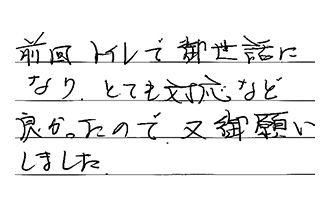 前回 トイレで 御世話に
なり、とても対応など
良かったので、又御願い
しました